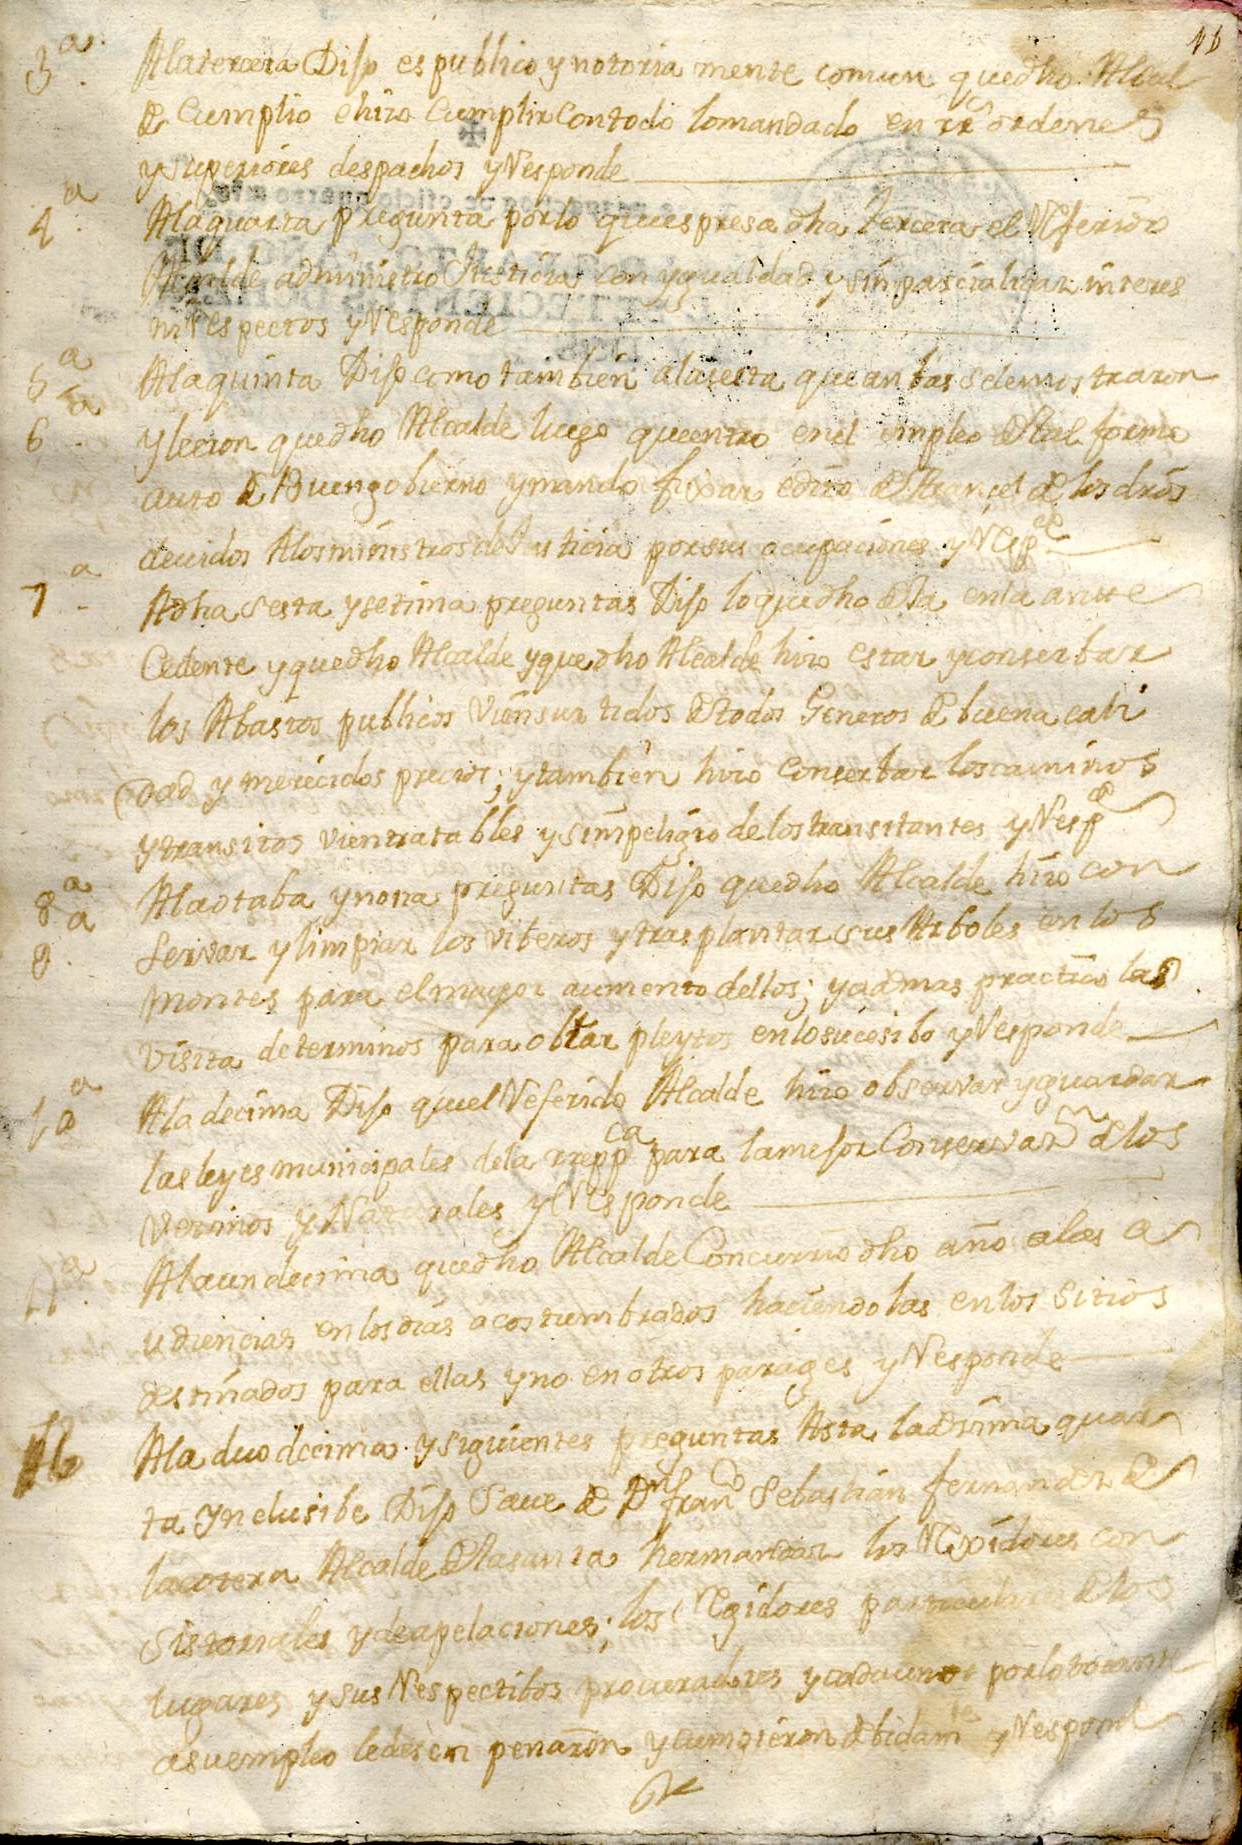 16
3ª. A la tercera Dijo es publico y notoria mente comun que dho Alcal
de Cumplio e hizo Cumplir con todo lo mandado en rs ordenes
y superiores despachos y Responde
4ª. A la quarta pregunta por lo que espresa dha tercera el Referido
Alcalde administro Justicia con ygualdad y sin parcialidar interes
ni respectos y Responde
5ª A la quinta Dijo como tambien a la sesta que anbas se demostraron
6ª. y leeron que dho Alcalde luego que entro en el empleo de tal formo
auto de Buen gobierno y mando fixar edito de Arancel de los dros
deuidos A los ministros de Justicia por sus ocupaciones y Respde
7ª. A dha sesta y setima preguntas Dijo lo que dho esta en la ante
Cedente y que dho Alcalde y que dho Alcalde hizo estar y conserbar
los Abastos publicos vien surtidos de todos Generos de buena cali
dad y merecidos precios; y tambien hizo Conserbar los caminos
y transitos vien tratables y sin peligro de los transitantes y Respde
8ª A la otaba y nona preguntas Dijo que dho Alcalde hizo con
9ª. servar y limpiar los viberos y trasplantar sus Arboles en los
montes para el mayor aumento dellos; y ademas practico las
visita de terminos para obtar pleytos en lo sucesibo y Responde
10ª A la decima Dijo que el Referido Alcalde hizo observar y guardar
las leyes municipales de la rreppca para la mejor Conservazn de los
vezinos y Naturales y Responde
11ª. A la undecima que dho Alcalde Concurrio dho año a las a
udiencias en los dias acostumbrados haciendolas en los sitios
destinados para ellas y no en otros parages y Responde
12 A la duodecima y siguientes preguntas Asta la desima quar
ta ynclusibe Dijo Saue de Dn Franco Sebastian fernandez de
la cotera Alcalde de la santa hermandad los Rexidores con
sistoriales y de apelaciones; los Regidores particulares de los
lugares y sus Respectibos procuradores y cada uno por lo tocante
a su empleo le desempenaron y cumplieron debidamte y Responde